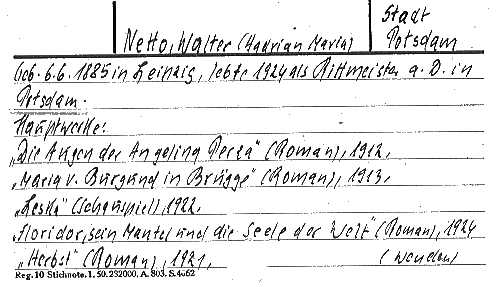 Stadt
Netto, Walter (Hadrian Maria) Potsdam
Geb. 6.6.1885 in Leipzig, lebte 1924 als Rittmeister a.D. in
Potsdam.
Hauptwerke:
„Die Augen der Angelina Perza" (Roman), 1912,
„Maria v. Burgund in Brügge" (Roman), 1913,
„Leska" (Schauspiel), 1922,
„Floridor, sein Mantel und die Seele der Welt" (Roman), 1924
„Herbst" (Roman), 1921, (wenden)
Reg. 10 Stichnote. 1. 50. 232000, A. 803. S. 4462